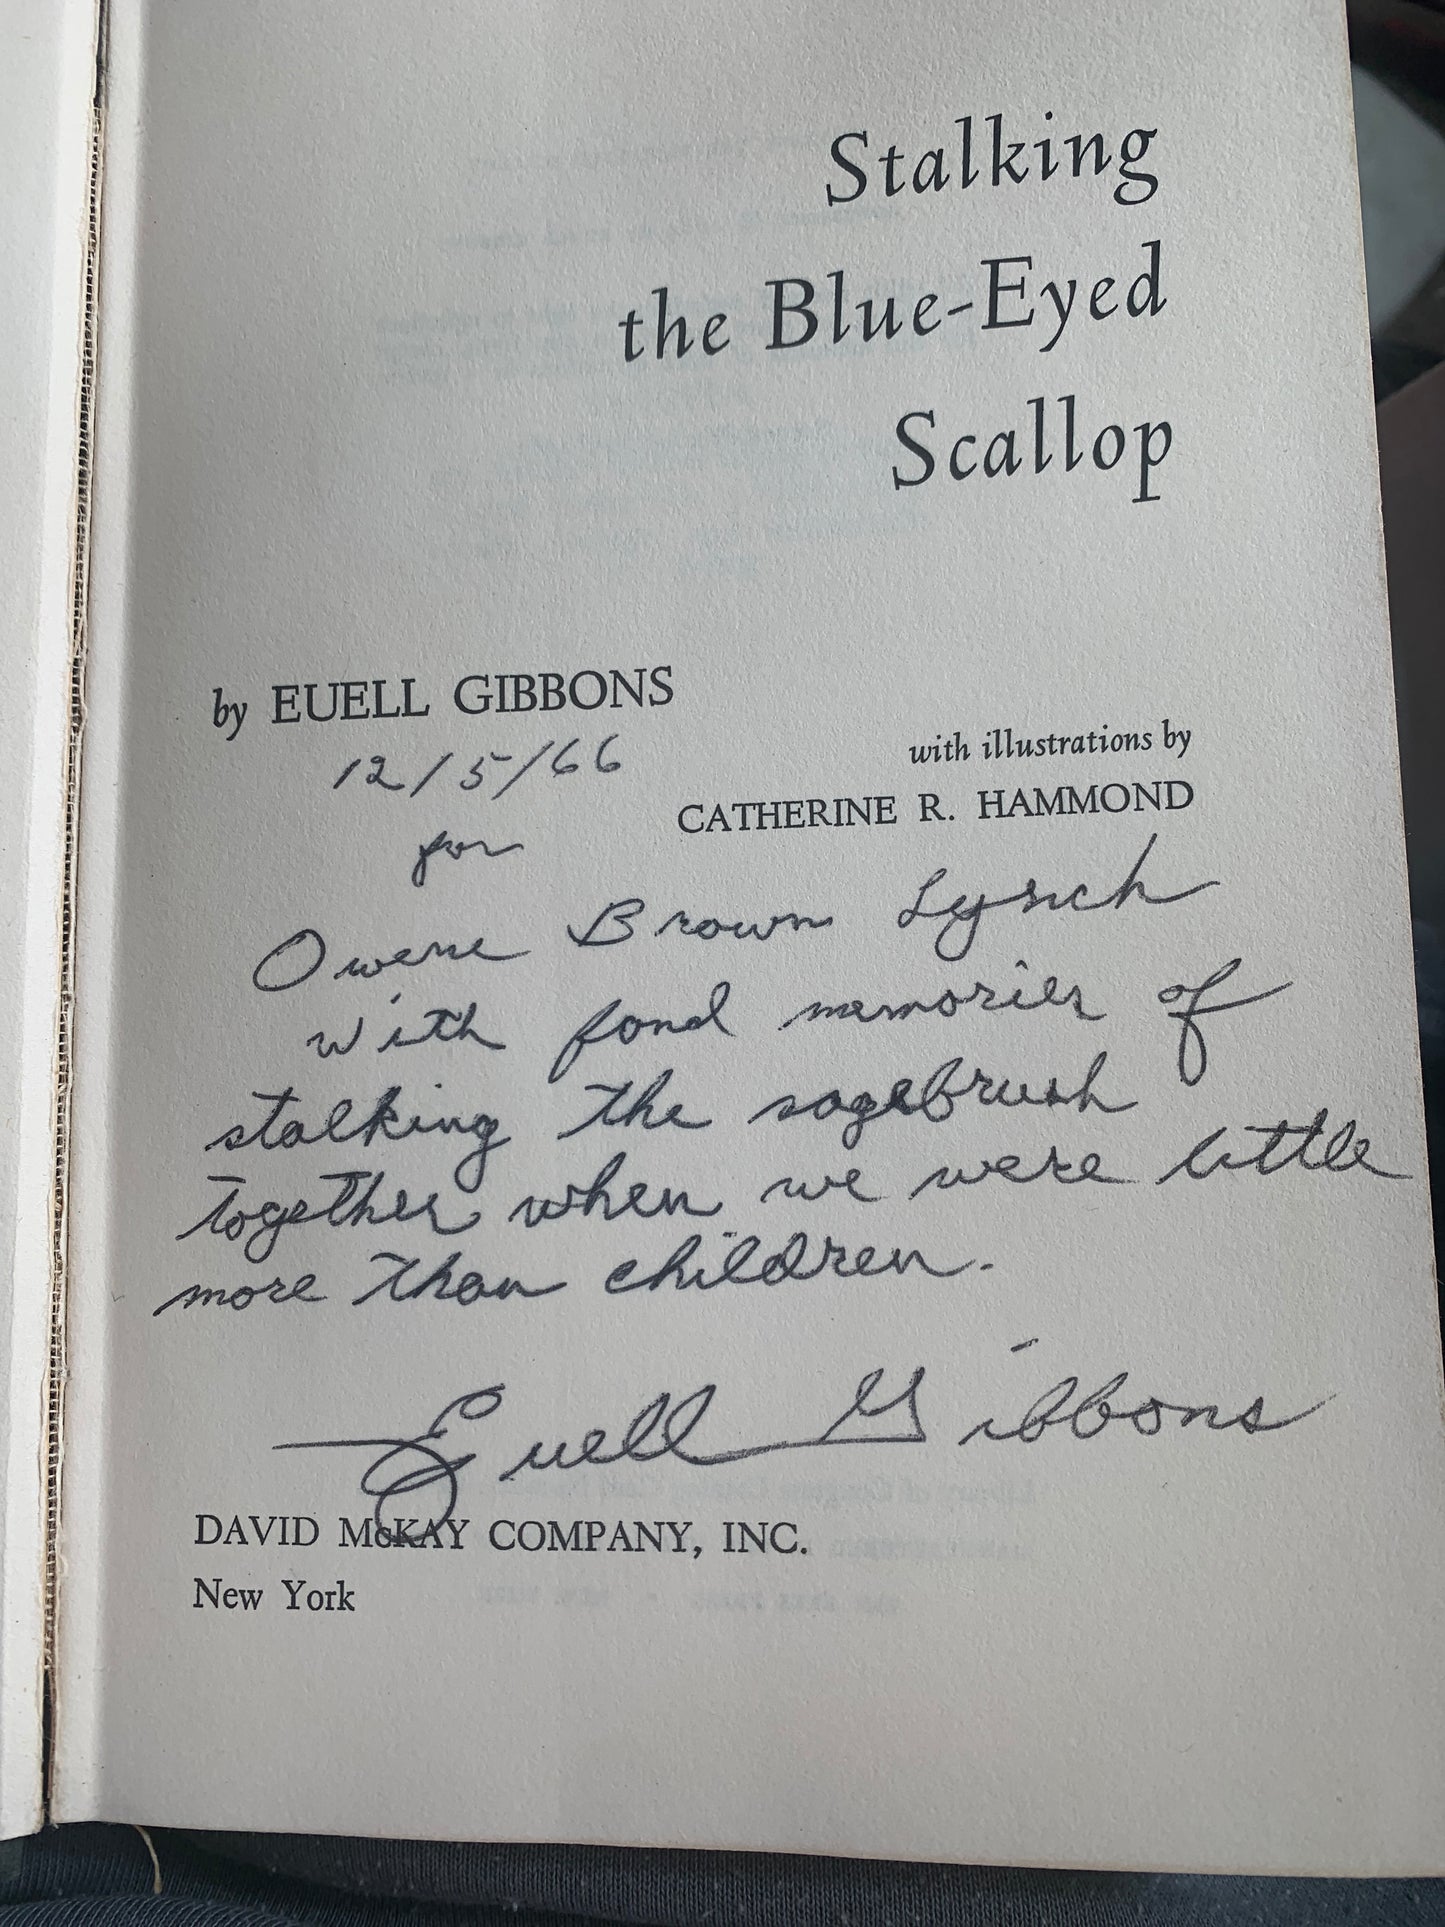 Stalking
the Blue-Eyed
Scallop
by EUELL GIBBONS
with illustrations by
CATHERINE R. HAMMOND
12/5/66
for
Owene Brown Lynch
with fond memories of
stalking the sagebrush
together when we were little
more than children.
Euell Gibbons
DAVID McKAY COMPANY, INC.
New York